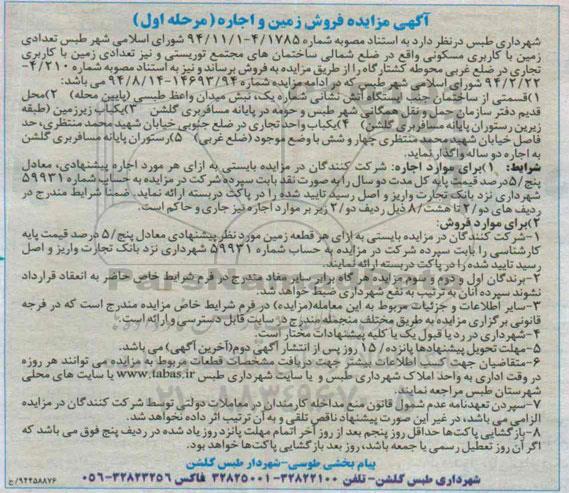 آگهی مزایده فروش زمین و اجاره (مرحله اول)
شهرداری طبس درنظر دارد به استناد مصوبه شماره ۹۴/۱۱/۱-۴/۱۷۸۵ شورای اسلامی شهر طبس تعدادی
زمین با کاربری مسکونی واقع در ضلع شمالی ساختمان های مجتمع توریستی و نیز تعدادی زمین با کاربری
تجاری در ضلع غربی محوطه کشتارگاه را از طریق مزایده به فروش برساند و نیز به استناد مصوبه شماره ۴/۲۱۰-
۹۴/۲/۲۲ شورای اسلامی شهر طبس که در ادامه مزایده شماره ۱۴۶۹۳/۹۴-۹۴/۸/۱۴ می باشد:
۱)قسمتی از ساختمان جنب ایستگاه آتش نشانی شماره یک، نبش میدان واعظ طبسی (پایین محله) ۲)محل
قدیم دفتر سازمان حمل و نقل همگانی شهر طبس و حومه در پایانه مسافربری گلشن ۳)یکباب زیرزمین (طبقه
زیرین رستوران پایانه مسافربری گلشن) ۴)یکباب واحد تجاری در ضلع جنوبی خیابان شهید محمد منتظری، حد
فاصل خیابان شهید محمد منتظری چهار و شش با وضع موجود (ضلع غربی) ۵)رستوران پایانه مسافربری گلشن
به اجاره دو ساله واگذار نماید.
شرایط: ۱)برای موارد اجاره: شرکت کنندگان در مزایده بایستی به ازای هر مورد اجاره پیشنهادی، معادل
پنج/۵درصد قیمت پایه کل مدت دو سال را به صورت نقد بابت سپرده شرکت در مزایده به حساب شماره ۵۹۹۳۱
شهرداری نزد بانک تجارت واریز و اصل رسید تایید شده را در پاکت دربسته ارائه نماید. ضمنا شرایط مندرج در
ردیف های دو/۲ تا هشت/۸ ذیل ردیف دو/۲ زیر بر موارد اجاره نیز جاری و حاکم است.
۲)برای موارد فروش:
۱-شرکت کنندگان در مزایده بایستی به ازای هر قطعه زمین مورد نظر پیشنهادی معادل پنج/۵ درصد قیمت پایه
کارشناسی را بابت سپرده شرکت در مزایده به حساب شماره ۵۹۹۳۱ شهرداری نزد بانک تجارت واریز و اصل
رسید تایید شده را در پاکت دربسته ارائه نمایند.
۲-برندگان اول و دوم و سوم مزایده هر گاه برابر سایر مفاد مندرج در فرم شرایط خاص حاضر به انعقاد قرارداد
نشوند سپرده آنان به ترتیب به نفع شهرداری ضبط خواهد شد.
۳-سایر اطلاعات و جزئیات مربوط به این معامله(مزایده) در فرم شرایط خاص مزایده مندرج است که در فرجه
قانونی برگزاری مزایده به طریق مختلف منجمله مندرج در سایت قابل دسترسی و ارائه است.
۴-شهرداری در رد یا قبول یک یا کلیه پیشنهادات مختار است.
۵-مهلت تحویل پیشنهادها پانزده/۱۵ روز پس از انتشار آگهی دوم(آخرین آگهی) می باشد.
۶-متقاضیان جهت کسب اطلاعات بیشتر جهت دریافت مشخصات قطعات مربوط به مزایده می توانند هر روزه
در وقت اداری به واحد املاک شهرداری طبس و یا سایت شهرداری طبس www.tabas.ir یا سایت های محلی
شهرستان طبس مراجعه نمایند.
۷-سپردن تعهدنامه عدم شمول قانون منع مداخله کارمندان در معاملات دولتی توسط شرکت کنندگان در مزایده
الزامی می باشد، در غیر این صورت پیشنهاد ناقص تلقی و به آن ترتیب اثر داده نخواهد شد.
۸-بازگشایی پاکت‌ها حداقل روز پنجم بعد از روز آخر اتمام مهلت پانزد روز یاد شده در ردیف پنج فوق می باشد که
اگر آن روز تعطیل رسمی یا جمعه باشد، روز بعد بازگشایی پاکت‌ها خواهد بود.
پیام بخشی طوسی-شهردار طبس گلشن
شهرداری طبس گلشن-تلفن ۳۲۸۲۲۱۰۰-۳۲۸۲۵۰۰۱ فاکس ۳۲۸۲۳۲۵۶-۰۵۶
۹۴۴۵۸۸۷۶/ج
ParsNamadData